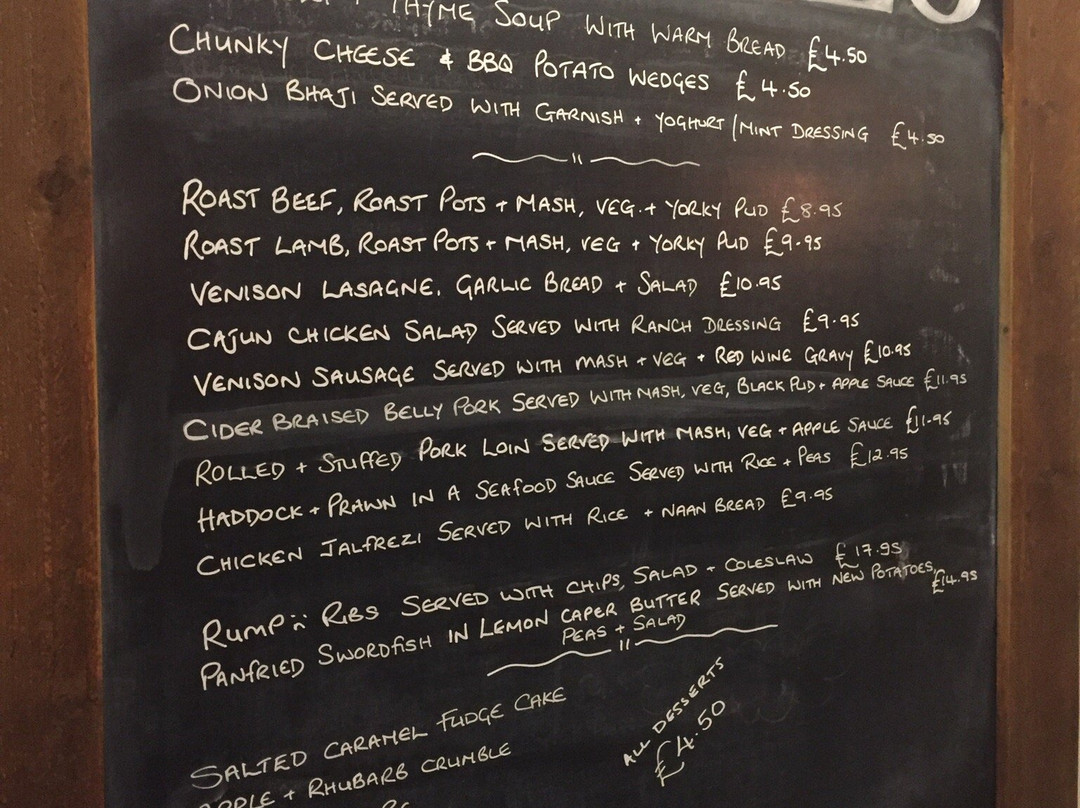 THYME SOUP WITH WARM BREAD £4.50
CHUNKY CHEESE & BBQ POTATO WEDGES £4.50
ONION BHAJI SERVED WITH GARNISH + YOGHURT/MINT DRESSING £4.50
ROAST BEEF, ROAST POTS + MASH, VEG. + YORKY PUD £8.95
ROAST LAMB, ROAST POTS + MASH, VEG + YORKY PUD £9.95
VENISON LASAGNE, GARLIC BREAD + SALAD £10.95
CAJUN CHICKEN SALAD SERVED WITH RANCH DRESSING £9.95
VENISON SAUSAGE SERVED WITH MASH + VEG + RED WINE GRAVY £10.95
CIDER BRAISED BELLY PORK SERVED WITH MASH, VEG, BLACK PUD + APPLE SAUCE £11.95
ROLLED + STUFFED PORK LOIN SERVED WITH MASH, VEG + APPLE SAUCE £11.95
HADDOCK + PRAWN IN A SEAFOOD SAUCE SERVED WITH RICE + PEAS £12.95
CHICKEN JALFREZI SERVED WITH RICE + NAAN BREAD £9.95
RUMP 'n' RIBS SERVED WITH CHIPS, SALAD + COLESLAW £17.95
PANFRIED SWORDFISH IN LEMON CAPER BUTTER SERVED WITH NEW POTATOES, £14.95
PEAS + SALAD
SALTED CARAMEL FUDGE CAKE
APPLE + RHUBARB CRUMBLE
ALL DESSERTS
£4.50